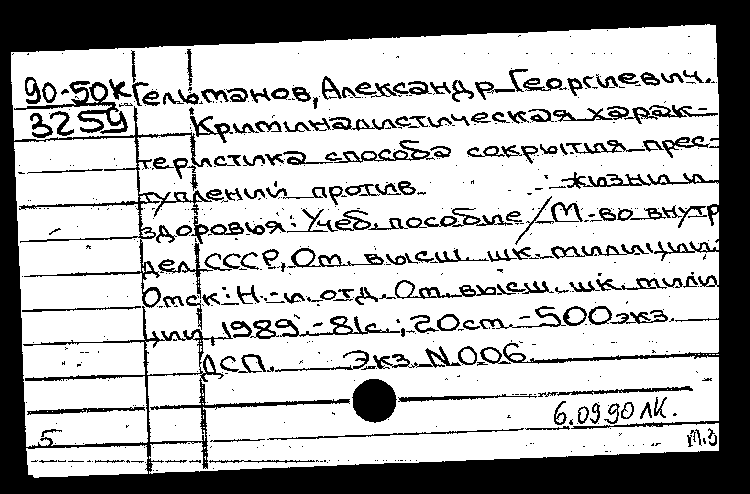 90-50К Гельманов, Александр Георгиевич.
3259 Криминалистическая харак-
теристика способа сокрытия прес-
туплений против жизни и
здоровья: Учеб. пособие / М-во внутр
дел СССР, Ом. высш. шк. милиции.
Омск: Н.-и. отд. Ом. высш. шк. мили
ции, 1989. - 81с.; 20 см. - 500 экз.
ДСП. Экз. N 006.
6.09.90 ЛК.
5
т.з